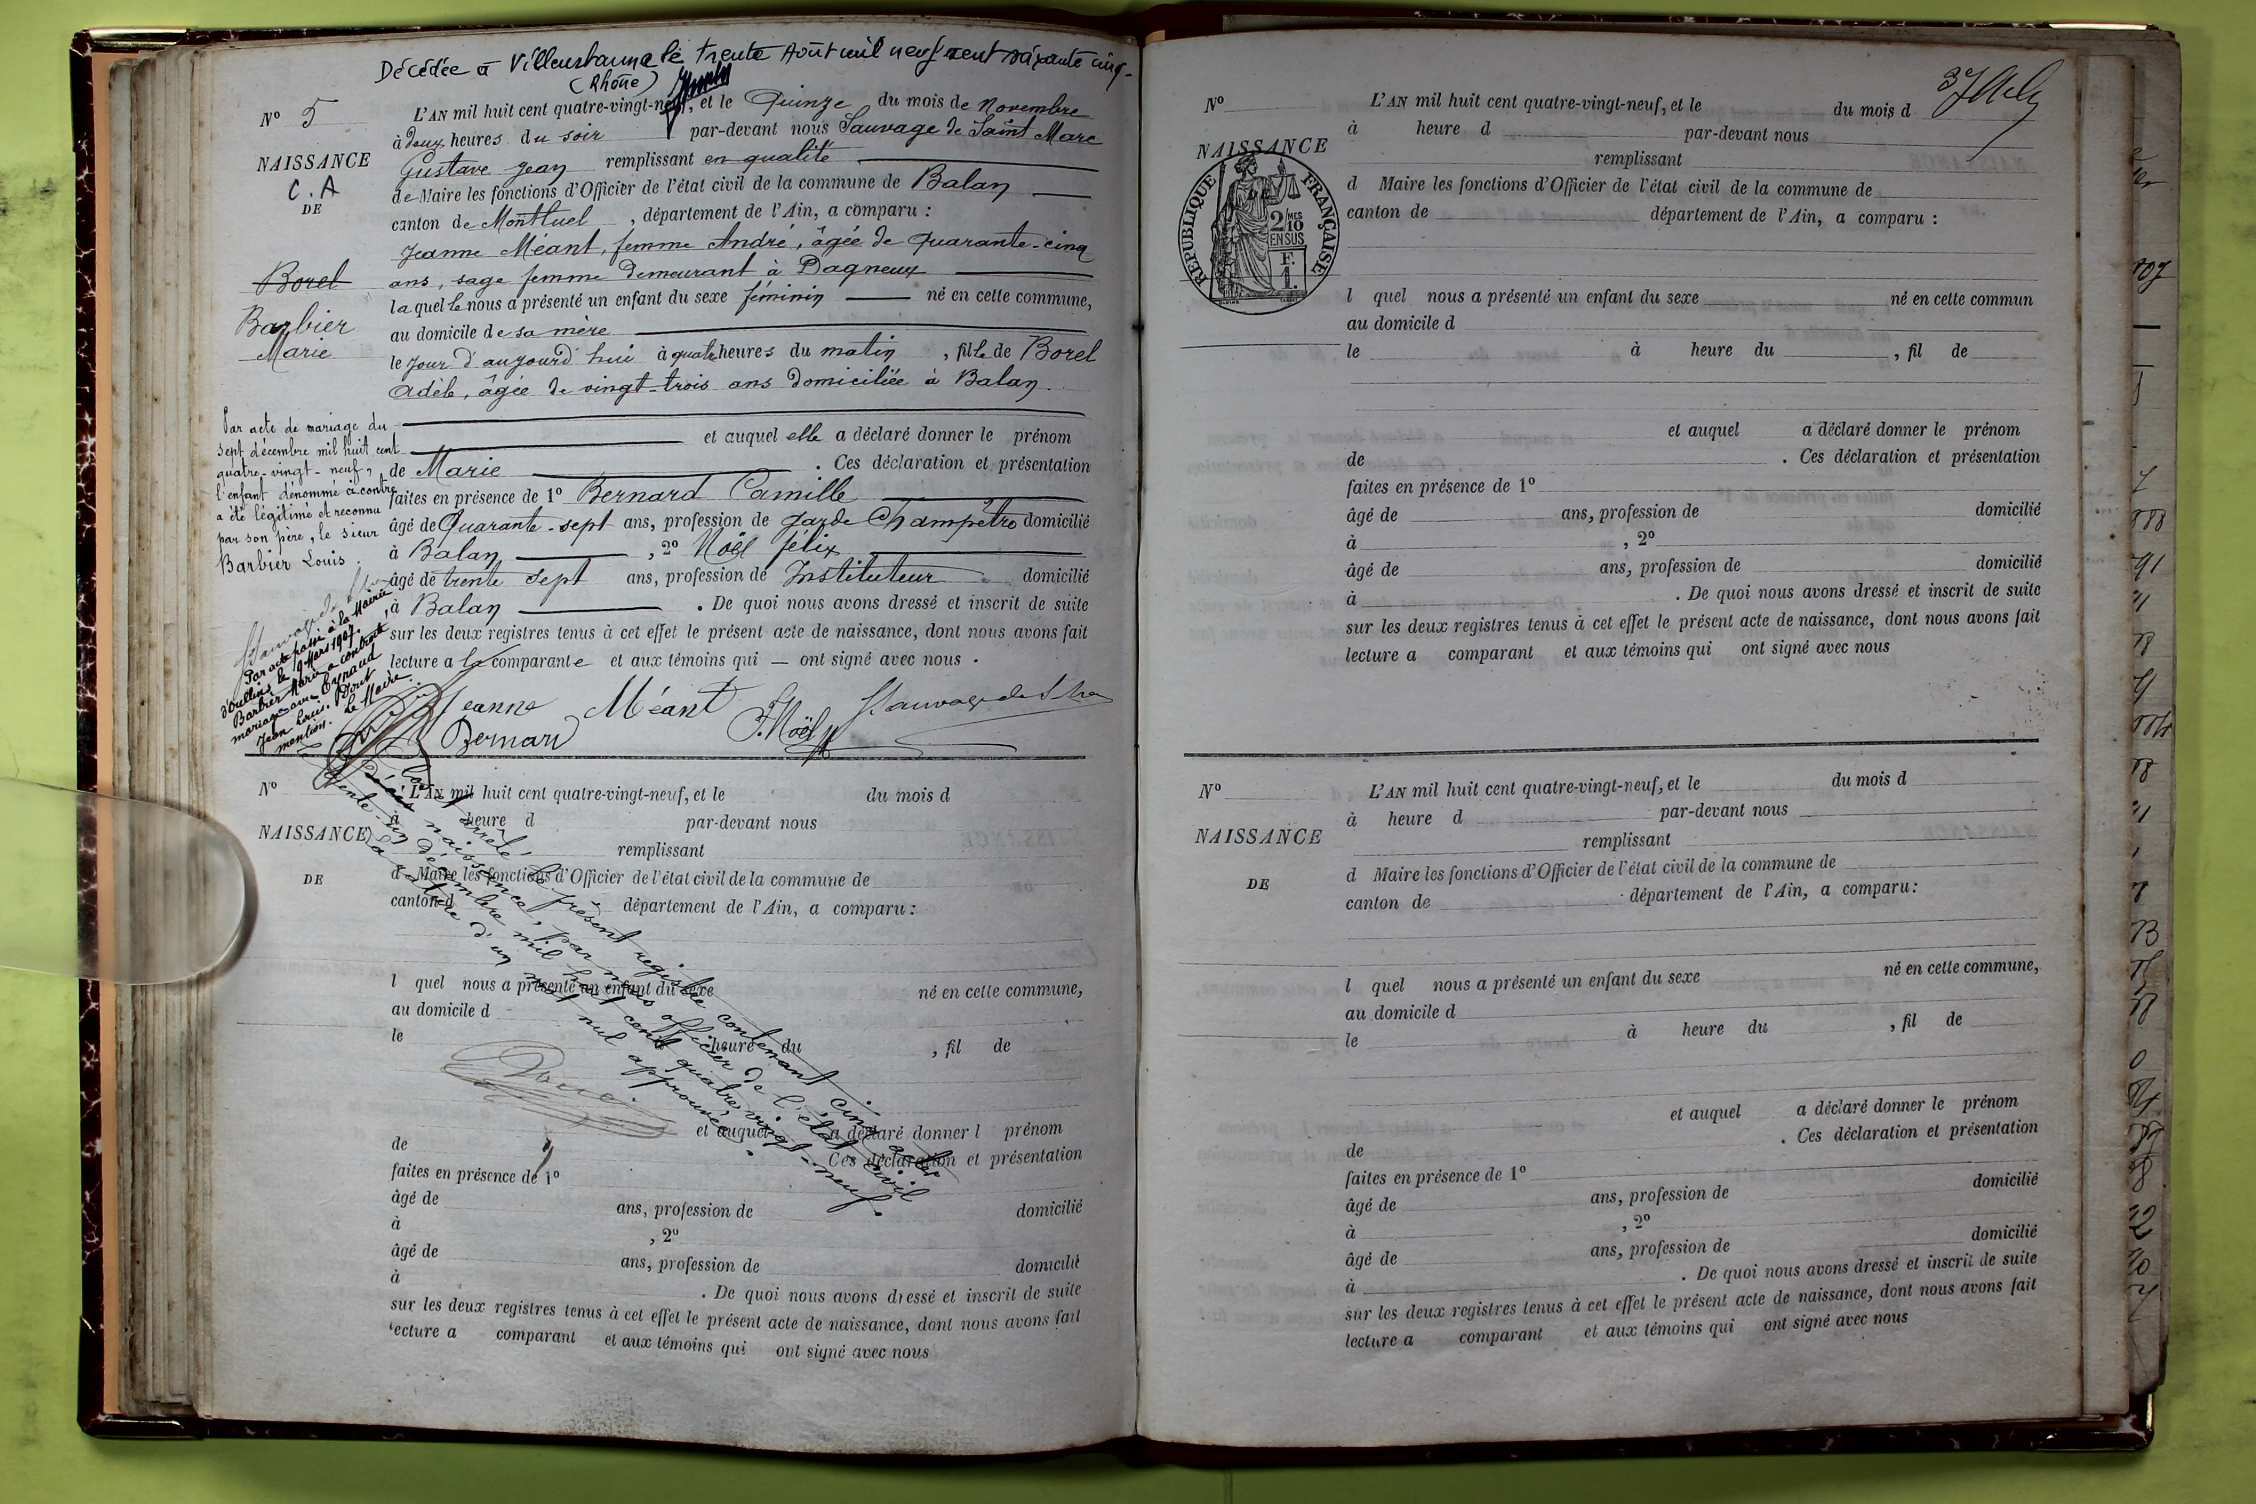 Décédée à Villeurbanne le trente Août mil neuf cent soixante cinq.
(Rhône)
N° 5
NAISSANCE
C. A
DE
Borel
Barbier
Marie
L'AN mil huit cent quatre-vingt-neuf, et le Quinze du mois de Novembre
à deux heures du soir par-devant nous Sauvage de Saint Marc
Gustave Jean remplissant en qualité
de Maire les fonctions d'Officier de l'état civil de la commune de Balan
canton de Montluel, département de l'Ain, a comparu :
Jeanne Méant, femme André, âgée de Quarante-cinq
ans, sage femme demeurant à Dagneux
laquelle nous a présenté un enfant du sexe féminin né en cette commune,
au domicile de sa mère
le jour d'aujourd'hui à quatre heures du matin, fille de Borel
Adèle, âgée de vingt-trois ans domiciliée à Balan.
et auquel elle a déclaré donner le prénom
de Marie. Ces déclaration et présentation
faites en présence de 1° Bernard Camille
âgé de Quarante-sept ans, profession de garde Champêtre domicilié
à Balan, 2° Noël félix
âgé de trente sept ans, profession de Instituteur domicilié
à Balan. De quoi nous avons dressé et inscrit de suite
sur les deux registres tenus à cet effet le présent acte de naissance, dont nous avons fait
lecture a la comparante et aux témoins qui — ont signé avec nous.
Jeanne Méant
Bernard F. Noël
Par acte de mariage du
sept décembre mil huit cent
quatre-vingt-neuf,
l'enfant dénommé ci-contre
a été légitimé et reconnu
par son père, le sieur
Barbier Louis.
Par acte passé à la Mairie
d'Oullins, le 19 Mars 1907,
Barbier Marie a contracté
mariage avec Eyraud
Jean Louis. Dont
mention. Le Maire.
N°
NAISSANCE
DE
L'AN mil huit cent quatre-vingt-neuf, et le du mois d
à heure d par-devant nous
remplissant
d Maire les fonctions d'Officier de l'état civil de la commune de
canton d département de l'Ain, a comparu :
l quel nous a présenté un enfant du sexe né en cette commune,
au domicile d
le heure du, fil de
et auquel a déclaré donner l prénom
de Ces déclaration et présentation
faites en présence de 1°
âgé de ans, profession de domicilié
à, 2°
âgé de ans, profession de domicilié
à. De quoi nous avons dressé et inscrit de suite
sur les deux registres tenus à cet effet le présent acte de naissance, dont nous avons fait
lecture a comparant et aux témoins qui ont signé avec nous
arrêté le présent registre contenant cinq actes
de naissance, par nous officier de l'état civil
trente-un décembre mil huit cent quatre-vingt-neuf.
La rature d'un mot nul approuvée.
37
N°
NAISSANCE
RÉPUBLIQUE FRANÇAISE
2/10 MES
EN SUS
F.
1.
L'AN mil huit cent quatre-vingt-neuf, et le du mois d
à heure d par-devant nous
remplissant
d Maire les fonctions d'Officier de l'état civil de la commune de
canton de département de l'Ain, a comparu :
l quel nous a présenté un enfant du sexe né en cette commun
au domicile d
le à heure du, fil de
et auquel a déclaré donner le prénom
de. Ces déclaration et présentation
faites en présence de 1°
âgé de ans, profession de domicilié
à, 2°
âgé de ans, profession de domicilié
à. De quoi nous avons dressé et inscrit de suite
sur les deux registres tenus à cet effet le présent acte de naissance, dont nous avons fait
lecture a comparant et aux témoins qui ont signé avec nous
N°
NAISSANCE
DE
L'AN mil huit cent quatre-vingt-neuf, et le du mois d
à heure d par-devant nous
remplissant
d Maire les fonctions d'Officier de l'état civil de la commune de
canton de département de l'Ain, a comparu :
l quel nous a présenté un enfant du sexe né en cette commune,
au domicile d
le à heure du, fil de
et auquel a déclaré donner le prénom
de. Ces déclaration et présentation
faites en présence de 1°
âgé de ans, profession de domicilié
à, 2°
âgé de ans, profession de domicilié
à. De quoi nous avons dressé et inscrit de suite
sur les deux registres tenus à cet effet le présent acte de naissance, dont nous avons fait
lecture a comparant et aux témoins qui ont signé avec nous